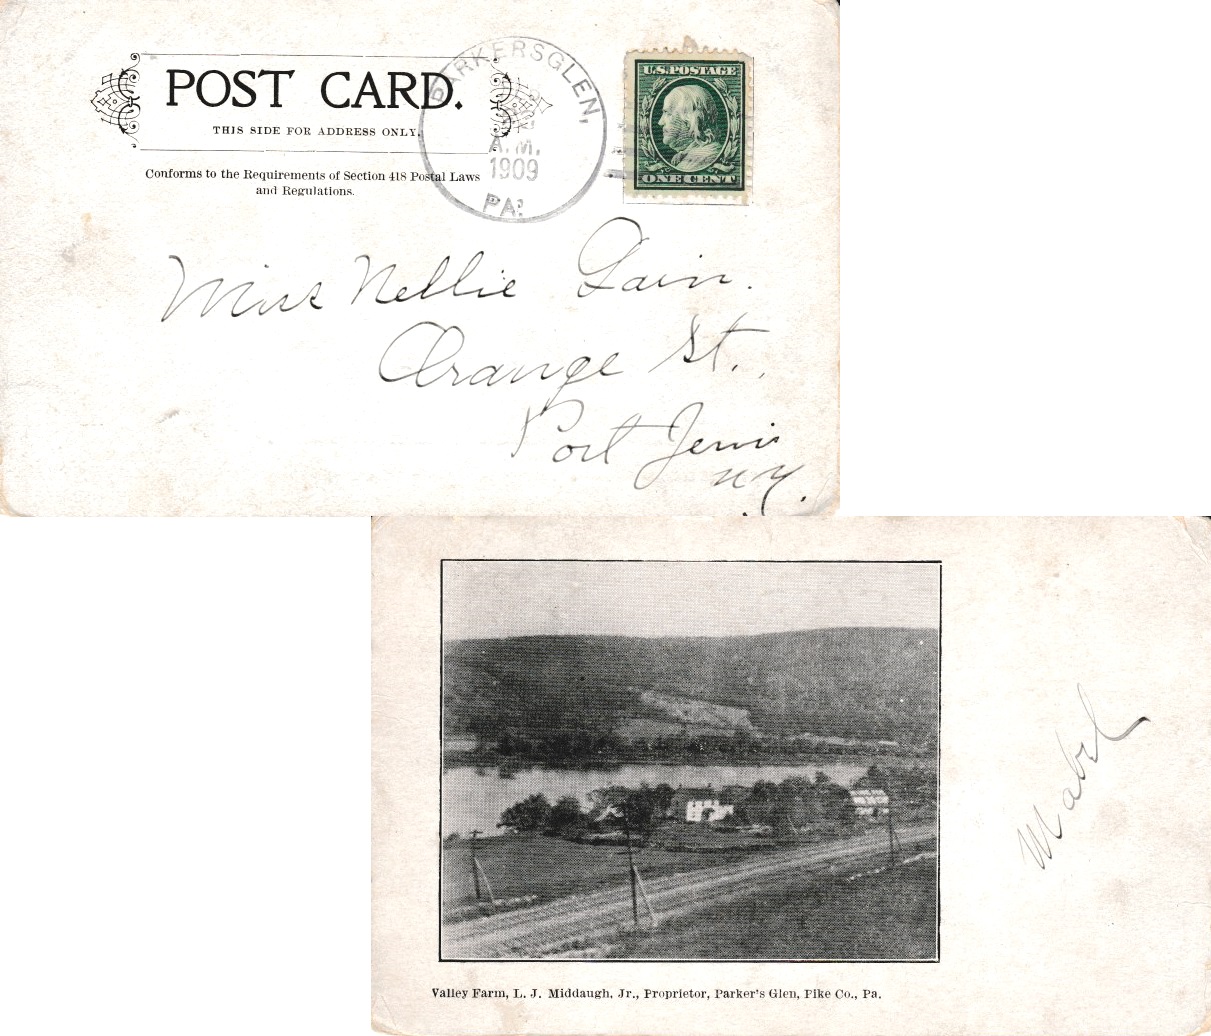 POST CARD.
THIS SIDE FOR ADDRESS ONLY.
Conforms to the Requirements of Section 418 Postal Laws
and Regulations.
PARKERSGLEN,
A.M.
1909
PA.
U.S. POSTAGE
ONE CENT
Miss Nellie Gavin.
Orange St.,
Port Jervis
N.Y.
Mabel
Valley Farm, L. J. Middaugh, Jr., Proprietor, Parker's Glen, Pike Co., Pa.